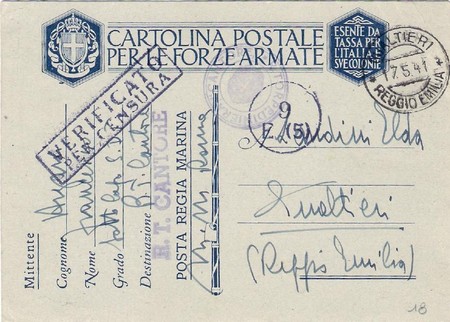 CARTOLINA POSTALE
PER LE FORZE ARMATE
ESENTE DA
TASSA PER
L'ITALIA E
SVE COLONIE
ALTIERI
17.5.41
REGGIO EMILIA
VERIFICATO
PER CENSURA
9
E (5)
Landini Elda
Gualtieri
(Reggio Emilia)
Mittente
Cognome
Nome
Grado
Destinazione R.T. Cantore
R. T. CANTORE
POSTA REGIA MARINA
Roma
18